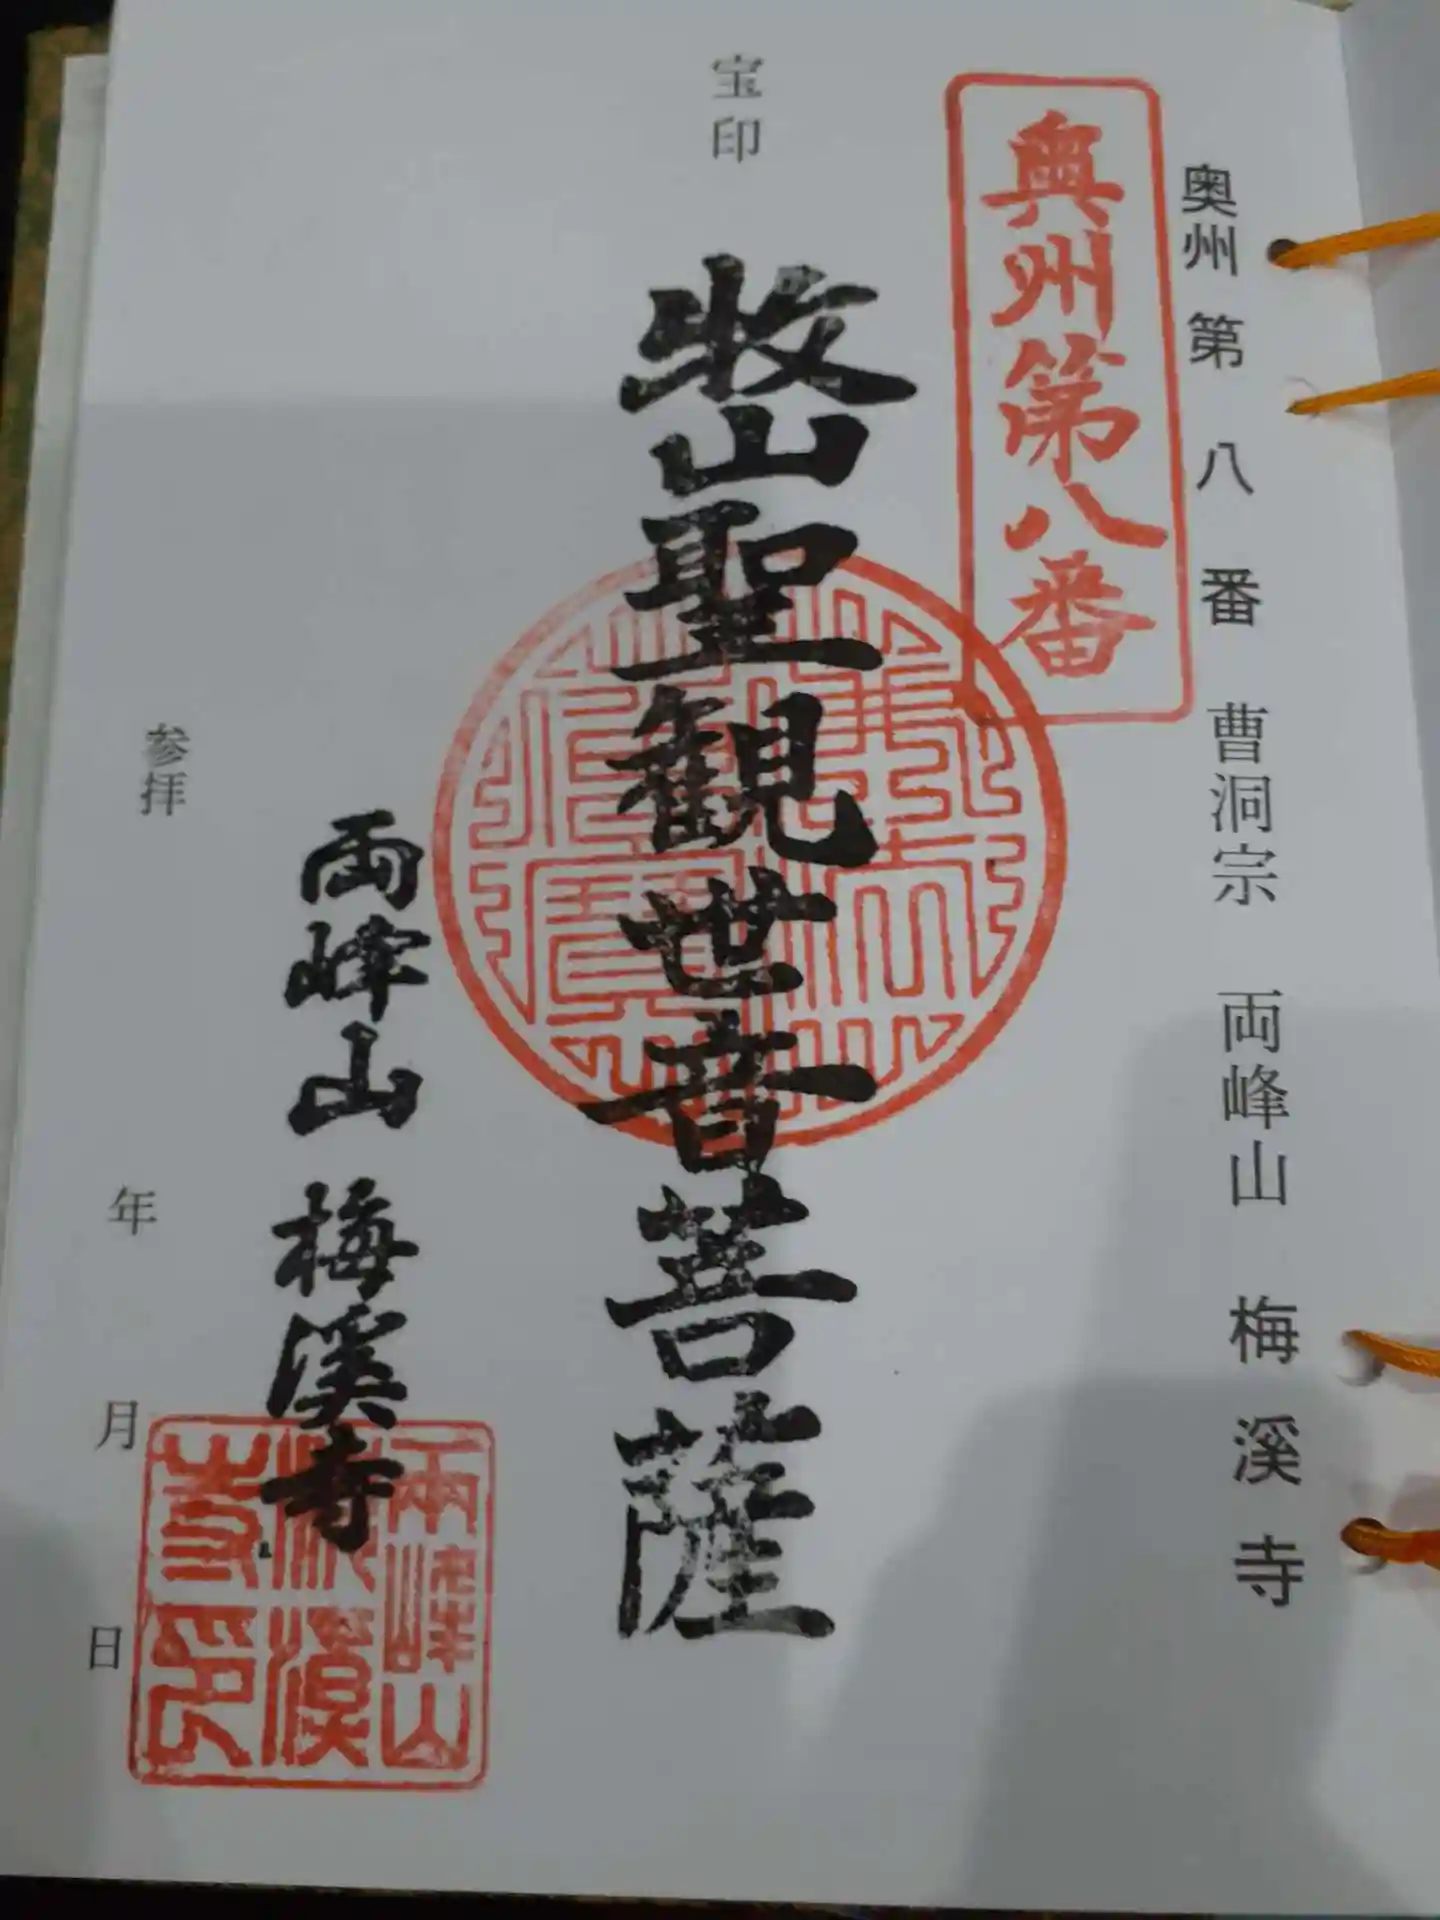 奥州第八番 曹洞宗 両峰山 梅溪寺
奥州第八番
宝印
牧山聖観世音菩薩
両峰山 梅溪寺
両峰山
梅溪
寺印
参拝 年 月 日